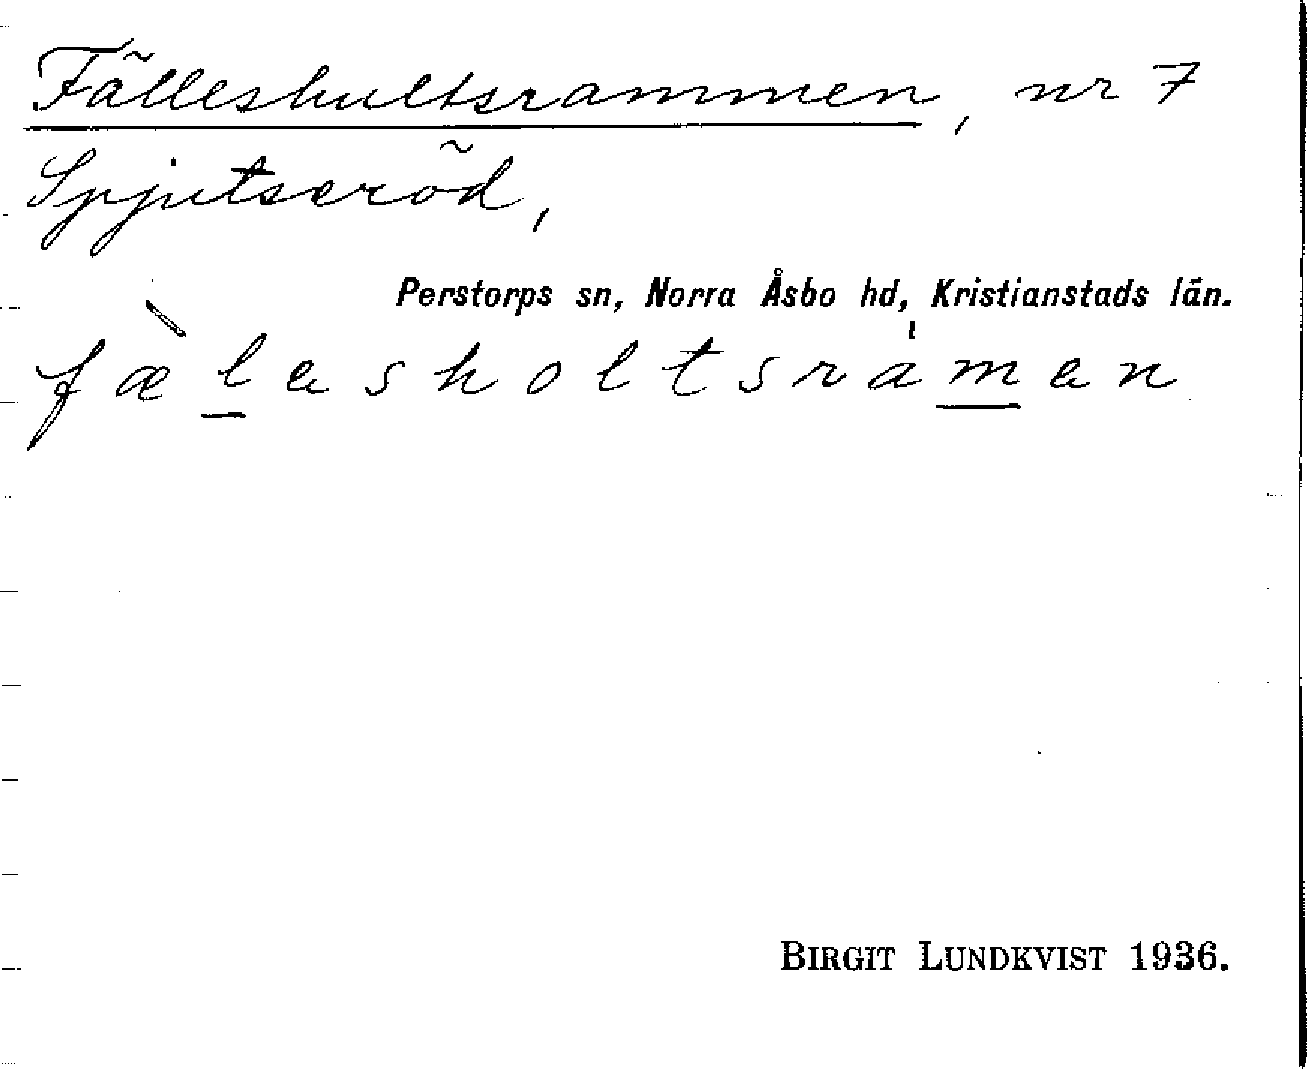 Fälleshultsrammen, nr 7
Spjutseröd,
Perstorps sn, Norra Åsbo hd, Kristianstads län.
fæ̀l̲esholtsràm̲en
BIRGIT LUNDKVIST 1936.